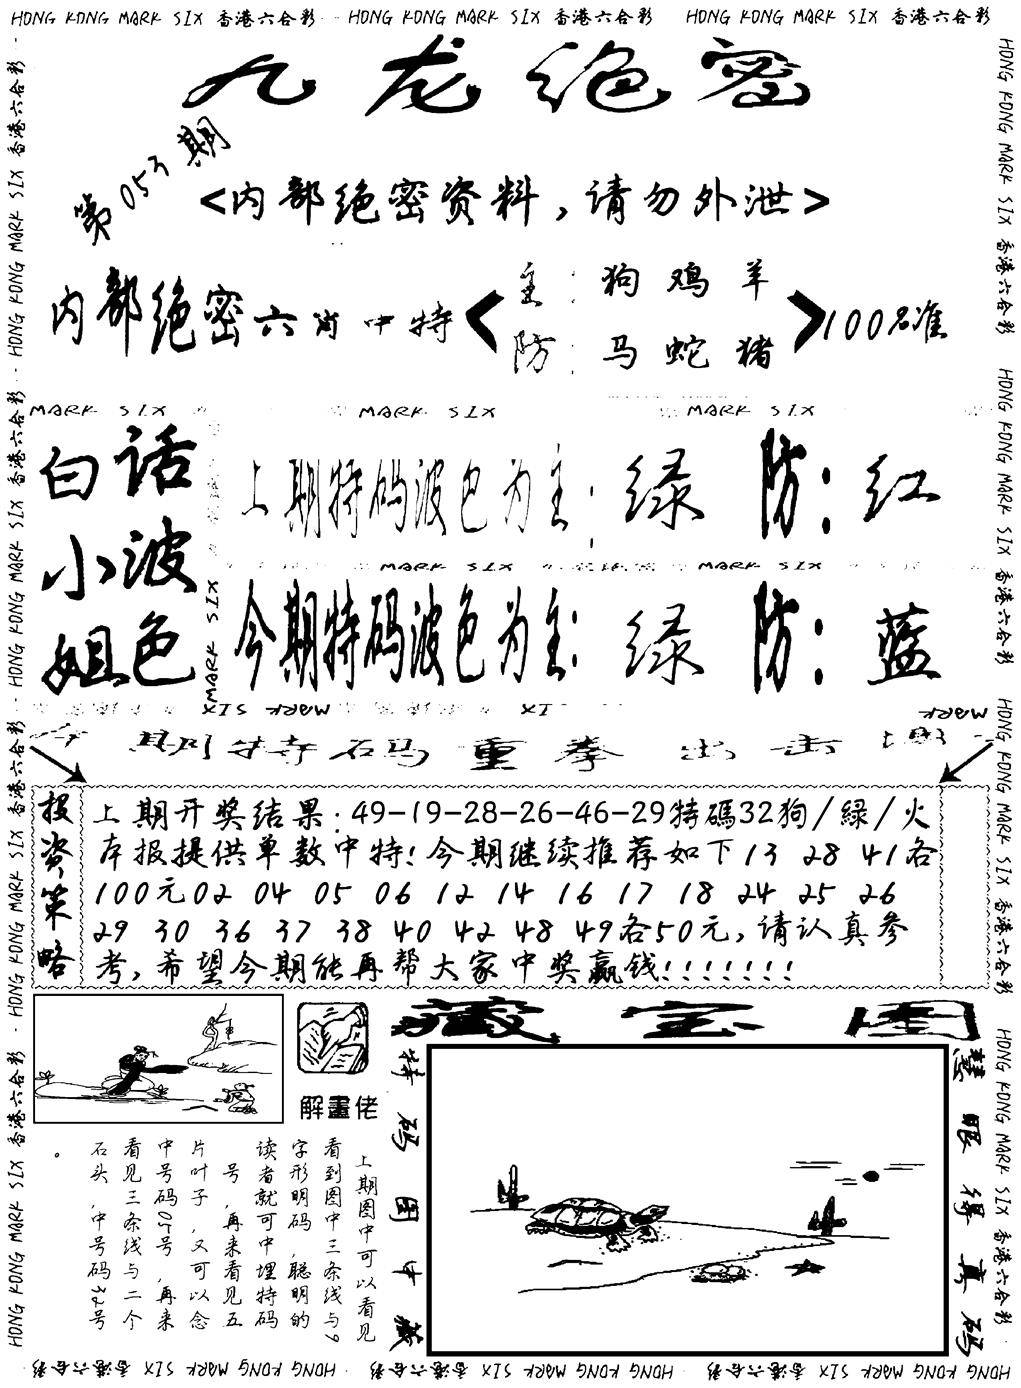 HONG KONG MARK SIX 香港六合彩 HONG KONG MARK SIX 香港六合彩 HONG KONG MARK SIX 香港六合彩
九龙绝密
第053期
<内部绝密资料，请勿外泄>
内部绝密六肖中特
主：狗鸡羊
防：马蛇猪
100%准
MARK SIX MARK SIX MARK SIX
白话
小波
姐色
上期特码波色为主：绿 防：红
MARK SIX MARK SIX
今期特码波色为主：绿 防：蓝
MARK SIX
今期特码重拳出击
投资策略
上期开奖结果:49-19-28-26-46-29特碼32狗/緑/火
本报提供单数中特!今期继续推荐如下13 28 41各
100元02 04 05 06 12 14 16 17 18 24 25 26
29 30 36 37 38 40 42 48 49各50元,请认真参
考,希望今期能再帮大家中奖赢钱!!!!!!!
解畫佬
上期图中可以看见
看到图中三条线与9
字形明码,聪明的
读者就可中埋特码
号,再来看见五
片叶子,又可以念
中号码05号,再来
看见三条线与二个
石头,中号码32号
。
藏宝图
特码图中藏
慧眼得真码
HONG KONG MARK SIX 香港六合彩 HONG KONG MARK SIX 香港六合彩 HONG KONG MARK SIX 香港六合彩